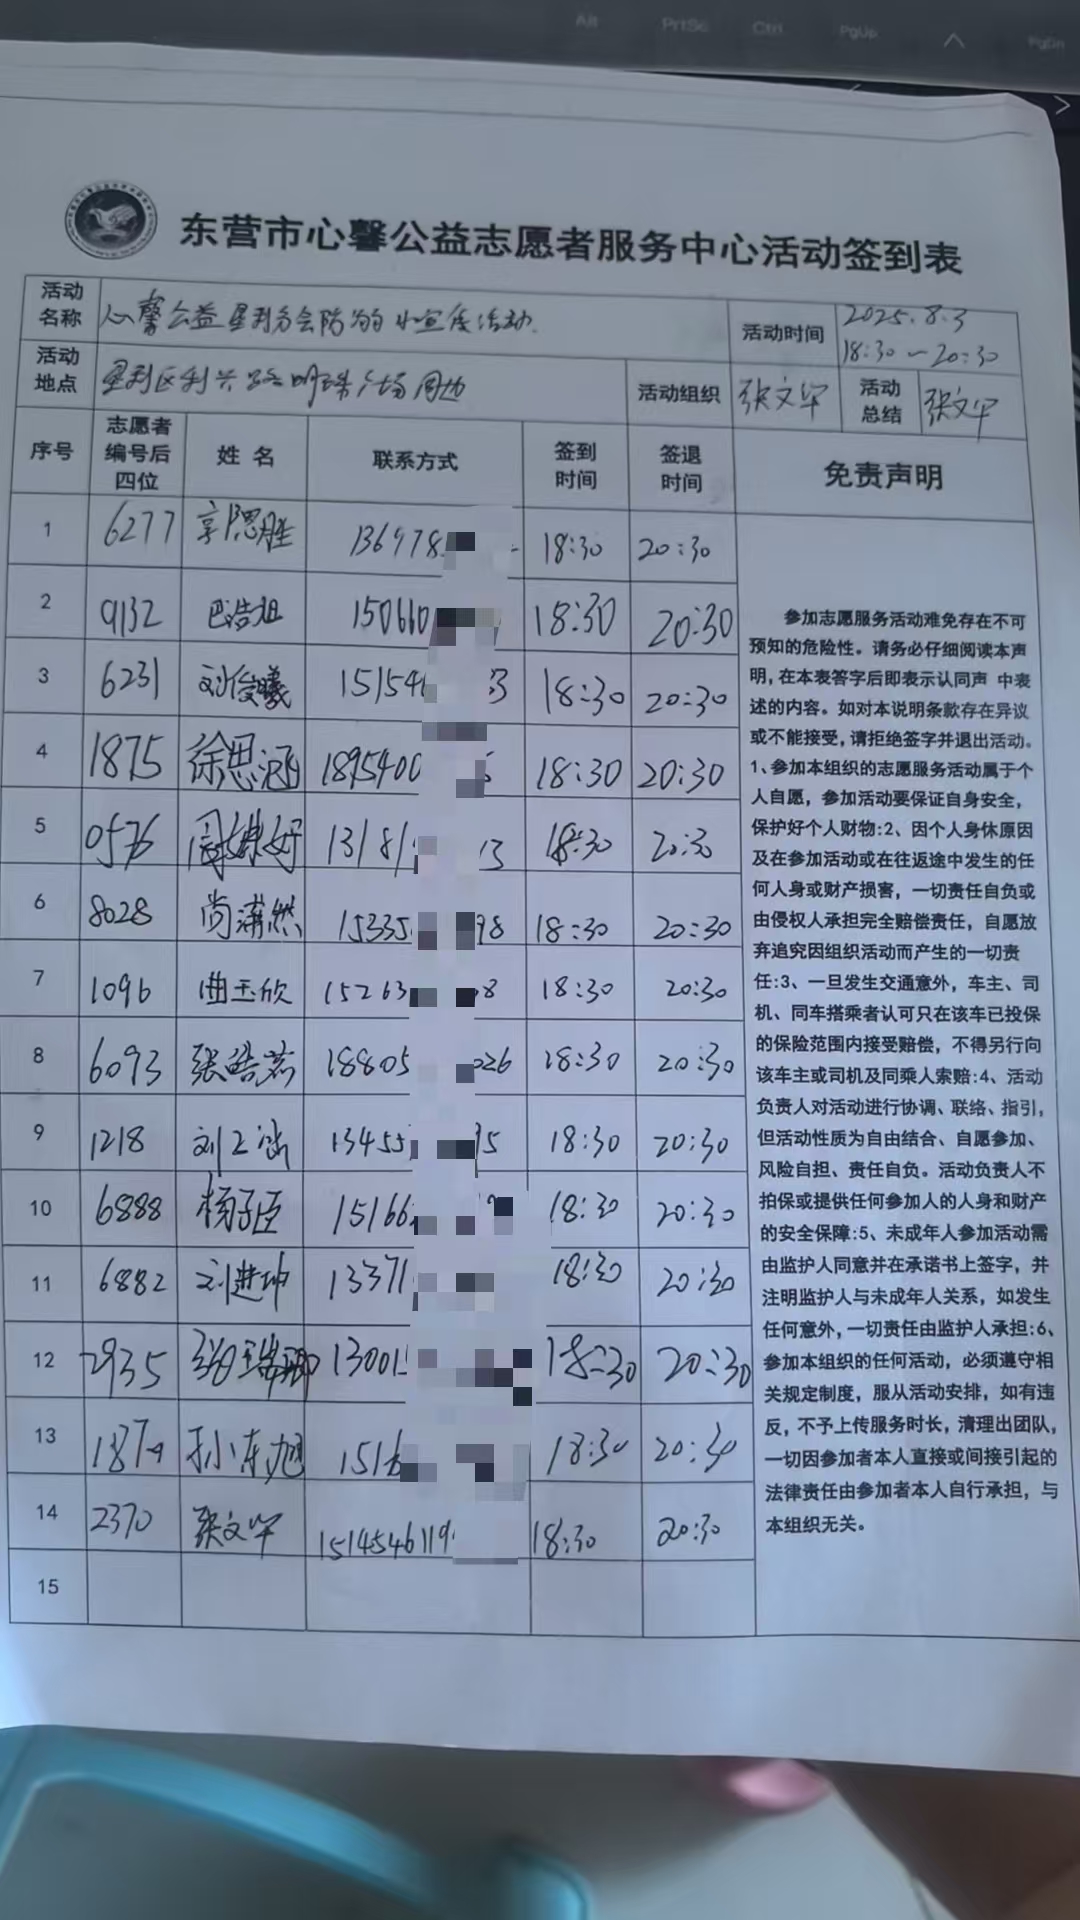 Alt PrtSc Ctrl PgUp PgDn
东营市心馨公益志愿者服务中心活动签到表
活动名称 心馨公益垦利分会防溺水宣传活动 活动时间 2025.8.3 18:30-20:30
活动地点 垦利区利兴路明珠广场周边 活动组织 张文华 活动总结 张文华
序号 志愿者编号后四位 姓名 联系方式 签到时间 签退时间 免责声明
1 6277 136978 18:30 20:30
2 9132 巴浩祖 150660 18:30 20:30
3 6231 刘俊曦 15154 3 18:30 20:30
4 1875 徐思涵 1895400 18:30 20:30
5 0576 13181 13 18:30 20:30
6 8028 尚潇然 15335 98 18:30 20:30
7 1096 曲玉欣 15263 8 18:30 20:30
8 6093 张皓茗 18805 026 18:30 20:30
9 1218 13455 5 18:30 20:30
10 6888 杨子臣 15166 18:30 20:30
11 6882 刘进坤 13371 18:30 20:30
12 2935 13001 18:30 20:30
13 1874 孙东旭 1516 18:30 20:30
14 2370 张文华 1514546119 18:30 20:30
15
参加志愿服务活动难免存在不可
预知的危险性。请务必仔细阅读本声
明,在本表签字后即表示认同声 中表
述的内容。如对本说明条款存在异议
或不能接受,请拒绝签字并退出活动。
1、参加本组织的志愿服务活动属于个
人自愿，参加活动要保证自身安全,
保护好个人财物:2、因个人身休原因
及在参加活动或在往返途中发生的任
何人身或财产损害，一切责任自负或
由侵权人承担完全赔偿责任，自愿放
弃追究因组织活动而产生的一切责
任:3、一旦发生交通意外，车主、司
机、同车搭乘者认可只在该车已投保
的保险范围内接受赔偿，不得另行向
该车主或司机及同乘人索赔:4、活动
负责人对活动进行协调、联络、指引,
但活动性质为自由结合、自愿参加、
风险自担、责任自负。活动负责人不
拍保或提供任何参加人的人身和财产
的安全保障:5、未成年人参加活动需
由监护人同意并在承诺书上签字，并
注明监护人与未成年人关系，如发生
任何意外,一切责任由监护人承担:6、
参加本组织的任何活动，必须遵守相
关规定制度，服从活动安排，如有违
反，不予上传服务时长，清理出团队,
一切因参加者本人直接或间接引起的
法律责任由参加者本人自行承担，与
本组织无关。